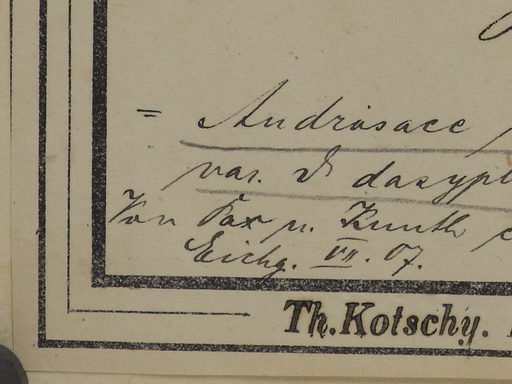 = Androsace
var. δ dasypl
Von Pax u. Knuth
Eichg. VII. 07.
Th. Kotschy.